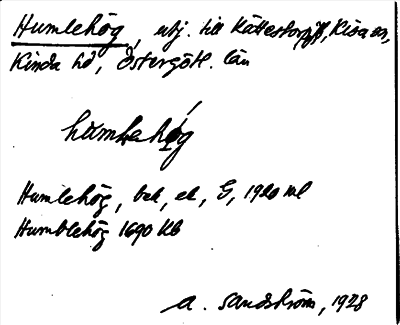 Humlehög, utj. till Kättestorp, Kisa sn,
Kinda hd, Östergötl. län
humlehög
Humlehög, bek, ek, G, 1920 ml
Humblehög 1690 Kb
A. Sandström, 1928